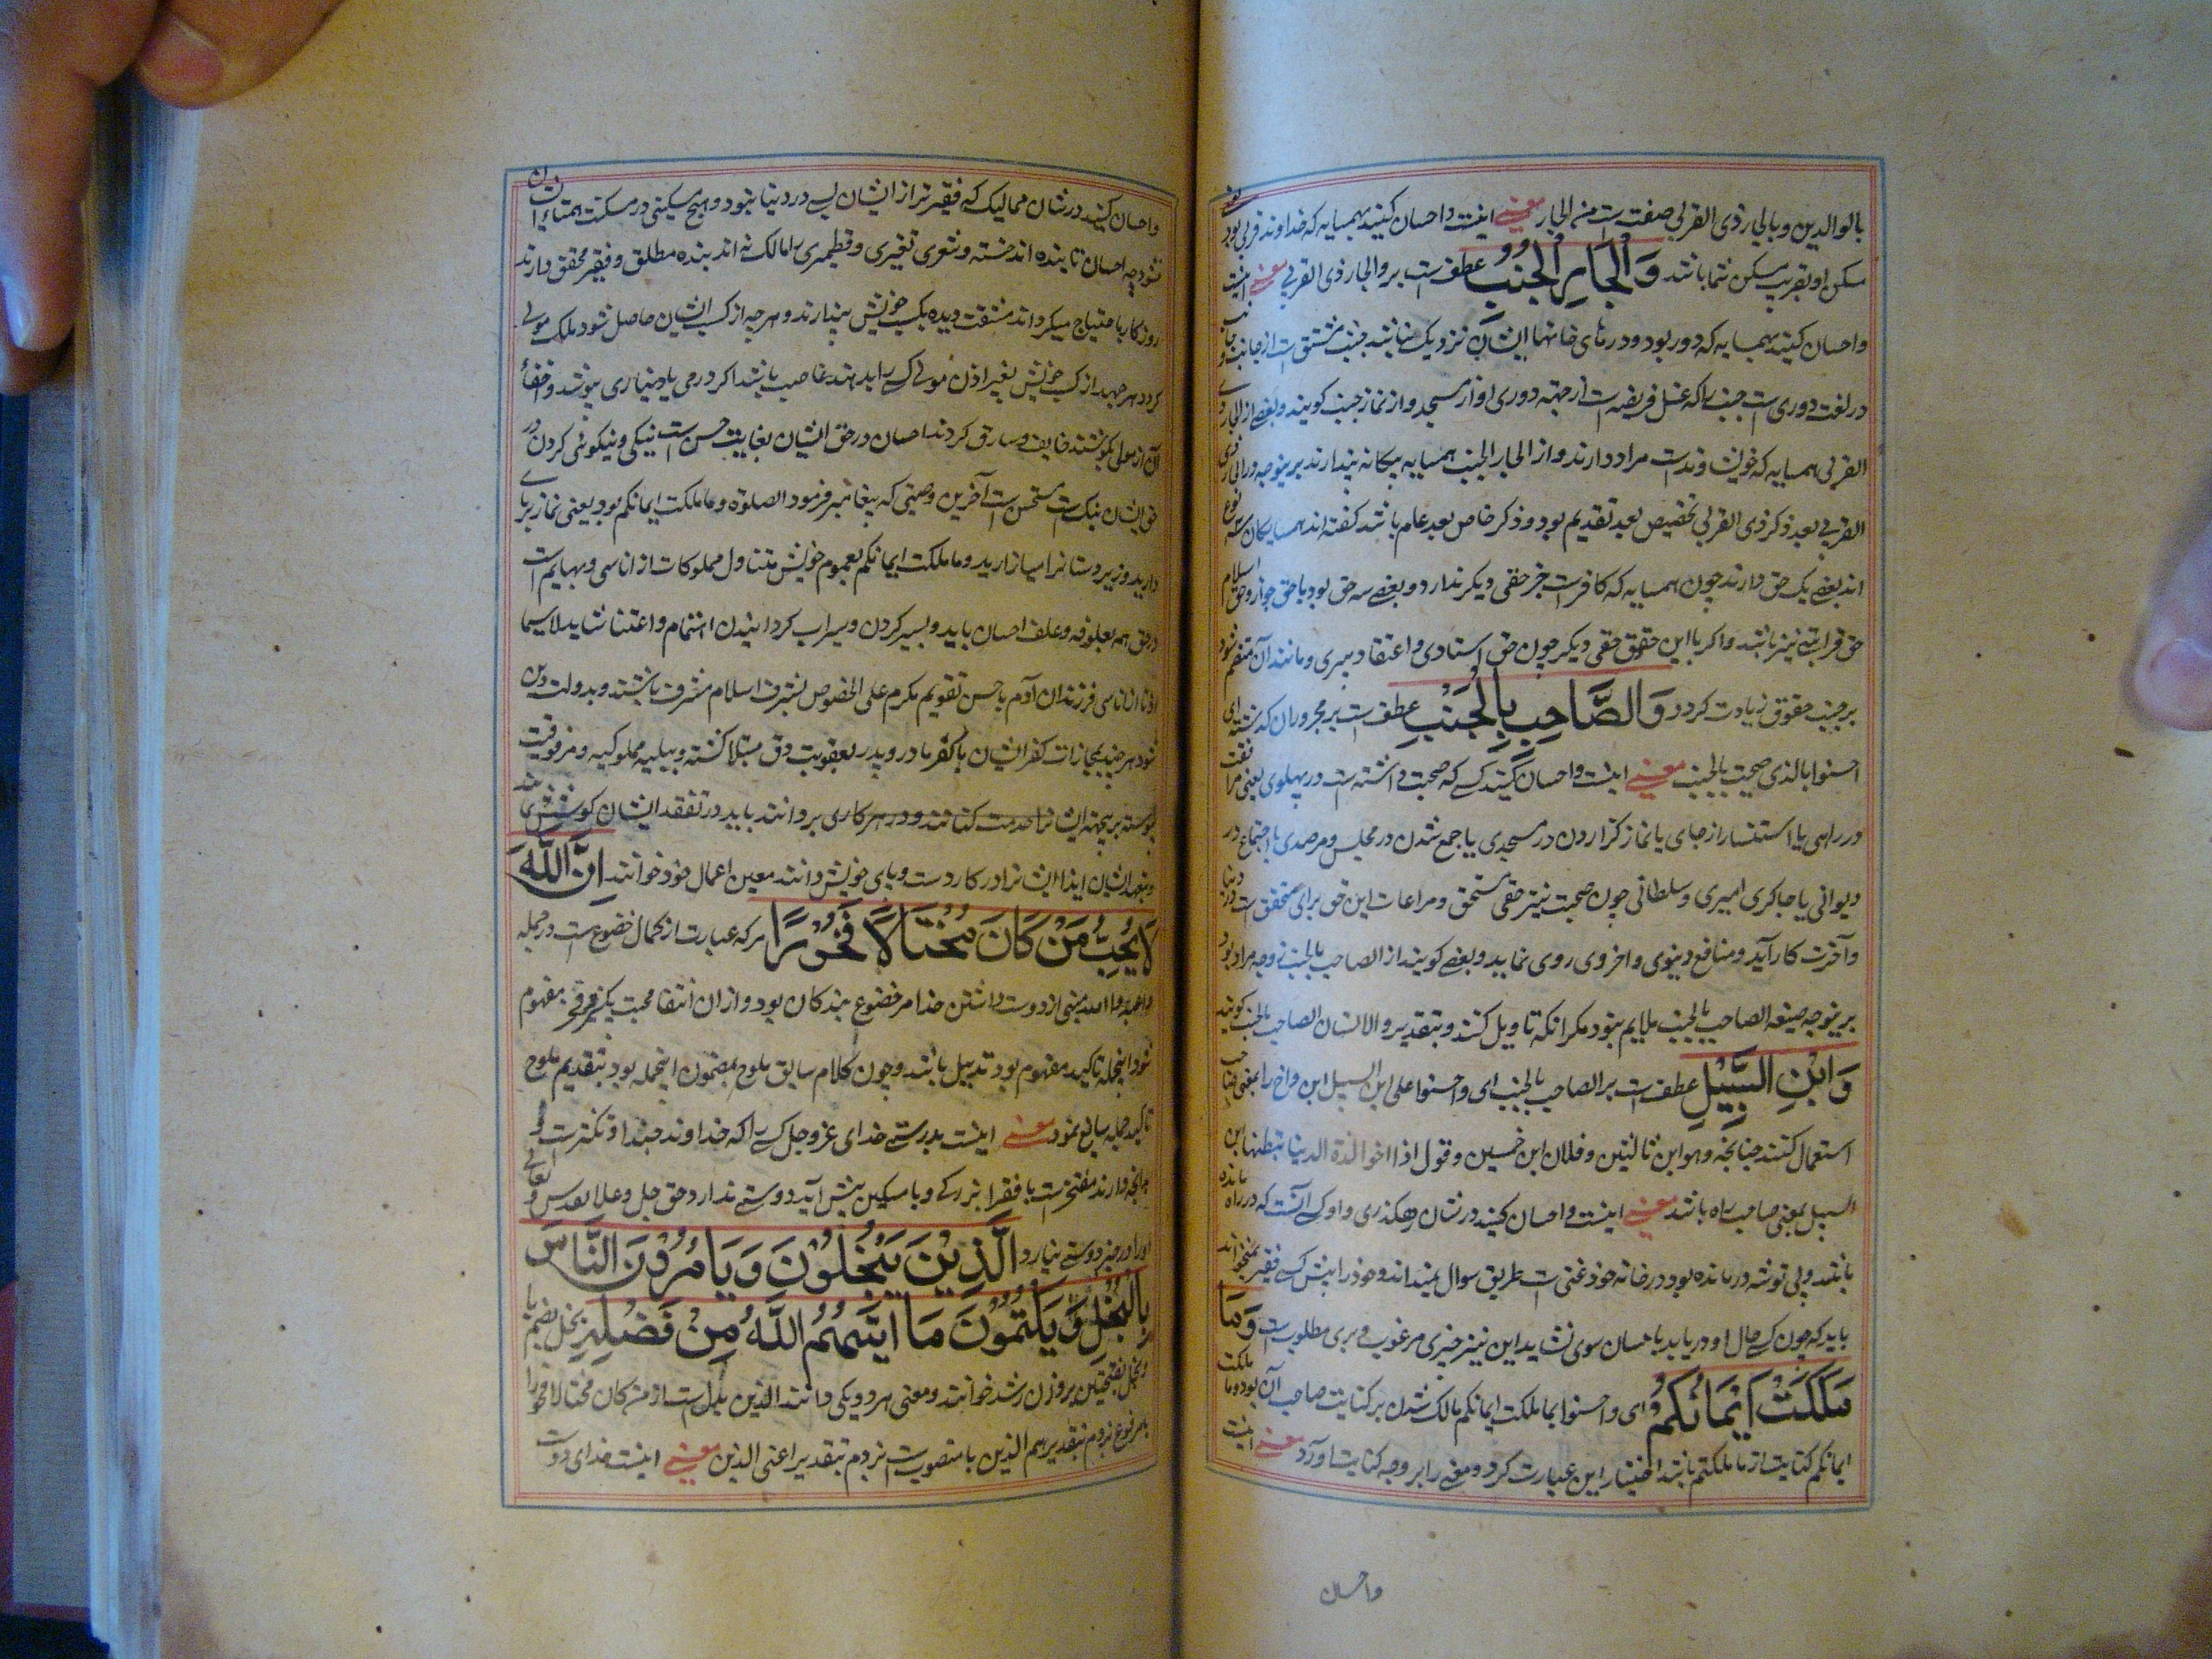 بالوالدین وبالجار ذی القربی صفتست من الجار معنے اینست واحسان کنید بهمسایه که خداوند قربی بود
مسکن او بقریب مسکن شما باشد وَالْجَارِ الْجُنُبِ عطفست بر والجار ذی القربی معنے اینست
واحسان کنید بهمسایه که دور بود ودرهای خانهای ایشان نزدیک نباشد جنب مشتق است از جانب
در لغت دوری است جنب را که غسل فریضه است از جهته دوری او از مسجد واز نماز جنب کویند وبعضے از الجار
القربی همسایه که خویشاوندست مراد دارند واز الجار الجنب همسایه بیکانه پندارند برینوجه
القربی بعد ذکر ذی القربی تخصیص بعد تقدیم بود وذکر خاص بعد عام باشد کفته اند همسایکان سه نوع
اند بعضے یک حق دارند چون همسایه که کافرست جز حقی دیکر ندارد وبعضے سه حق بود باحق جوار وحق اسلام
حق قرابتے نیز باشد واکر با این حقوق حقی دیکر چون حق استادی واعتقاد پیری ومانند آن منضم شود
برجنب حقوق زیادت کردد وَالصَّاحِبِ بِالْجَنْبِ عطفست بر مجروران کذشته ای
احسنوا بالذی صحبت بالجنب معنے اینست واحسان کنید کسے که صحبت داشته ست در پهلوی یعنی مرافقت
در راهی یا استفسار از جای یا نماز کزاردن در مسجدی یا جمع شدن در مجلس ومرصدی یا اجتماع در
دیوانی یا چاکری امیری وسلطانی چون صحبت نیز حقی مستحق ومراعات این حق برای مستحق است در دنیا
وآخرت کار آید ومنافع دنیوی واخروی روی نماید وبعضے کویند از الصاحب بالجنب زوجه مراد بود
برینوجه صیغه الصاحب بالجنب ملایم نبود مکر انکه تاویل کنند وبتقدیر والانسان الصاحب بالجنب کویند
وَابْنِ السَّبِيْلِ عطفست بر الصاحب بالجنب ای واحسنوا علی ابن السبیل ابن واخ را بمعنی صاحب
استعمال کنند چنانچه وهو ابن ثالثین وفلان ابن خمسین وقول اذا اخو الذة الدنیا تبطنها ابن
السبیل بمعنی صاحب راه باشد معنے اینست واحسان کنید در شان رهکذری واو کسے آنست که در راه مانده
باشد وبی توشه درمانده بود در خانه خود غنی است طریق سوال نمیداند وخود را پیش کسے فقیر نمیخواند
باید که چون کسے حال او دریابد باحسان سوی شتابد این نیز چیزی مرغوب وبری مطلوبست وَمَا
مَلَكَتْ اَيْمَانُكُمْ ای واحسنوا بما ملکت ایمانکم مالک شدن بر کنایت صاحب آن بود وما ملکت
ایمانکم کنایت از ما ملکتم باشد اختیار این عبارت کرد ومعنے را بر وجه کنایت اورد معنے اینست
واحسان
واحسان کنید در شان ممالیک که فقیرتر از ایشان کسے در دنیا نبود وهیچ مسکینی در مسکنت همتای ایشان
نشود چه احسان تا بنده اند خسته ونقوی نقیری وقطمیری را مالک نه اند بنده مطلق وفقیر محقق دارند
روزکار باحتیاج میکردانند مشقت دیده بکسب خویش نپندارند وهرچه از کسب ایشان حاصل شود ملک مولے
کردد هرچه از کسب خویش بغیر اذن مولے کسے را بدهند غاصب باشد اکر درمی یا دیناری بپوشد واخفا
آن از مولی بکوشند خاین وسارق کردند احسان در حق ایشان بغایت حسن است نیکی ونیکوئی کردن در
حق ایشان نیکست مستحسن است آخرین وصیتی که پیغامبر فرمود الصلوة وما ملکت ایمانکم بود یعنی نماز برپای
دارید وزیر دستانرا میازارید وما ملکت ایمانکم بعموم خویش متناول مملوکات از اناسی وبهایم است
در حق همه بعلوفه وعلف احسان باید وبسیر کردن وسیراب کردانیدن اهتمام واعتنا شاید لا سیما
اناسی فرزندان آدم باحسن تقویم مکرم علی الخصوص بشرف اسلام مشرف باشند وبدولت دین
شود هر چند بمجازات کفر ایشان یا کفر مادر وپدر بعقوبت رق مبتلا کشته وببلیه مملوکیه ومرقوقیت
پیوسته بر پنجه ایشان را خدمت کنانند ودر هر کاری بروانند باید در تفقد ایشان کوشش نمایند
وبتعهد ایشان ایذا ایشانرا در کار دست وپای خویش دانند معین اعمال خود خوانند اِنَّ اللّٰهَ
لَا يُحِبُّ مَنْ كَانَ مُخْتَالًا فَخُوْرًا مرکه عبارت از کمال خضوعست در جمله
واعبدوا الله مبنی از دوست داشتن خدا مر خضوع بندکان بود واز ان انتفا محبت بکبر وفخر مفهوم
شود اینجمله تاکید مفهوم بود تذییل باشد وچون کلام سابق ملوح بمضمون اینجمله بود بتقدیم ملوح
تاکید جمله سایغ نمود معنے اینست بدرستے خدای عز وجل کسے را که خداوند خیلا وتکبرست و
بدانچه دارند مفتخرست با فقرا بزرکے وبا مساکین پیش آید دوستے ندارد حق جل وعلا بقدس وتعالے
او را در حیز دوستے نیارد اَلَّذِيْنَ يَبْخَلُوْنَ وَيَأْمُرُوْنَ النَّاسَ
بِالْبُخْلِ وَيَكْتُمُوْنَ مَا اٰتٰىهُمُ اللّٰهُ مِنْ فَضْلِهٖ بخل بضم با
وبخل بفتحتین بر وزن رشد خوانند ومعنی هر دو یکی دانند الذین بدل است از من کان مختالا فخورا
یا مرفوع بذم بتقدیر هم الذین یا منصوبست بذم بتقدیر اعنی الذین معنے اینست خدای دوست